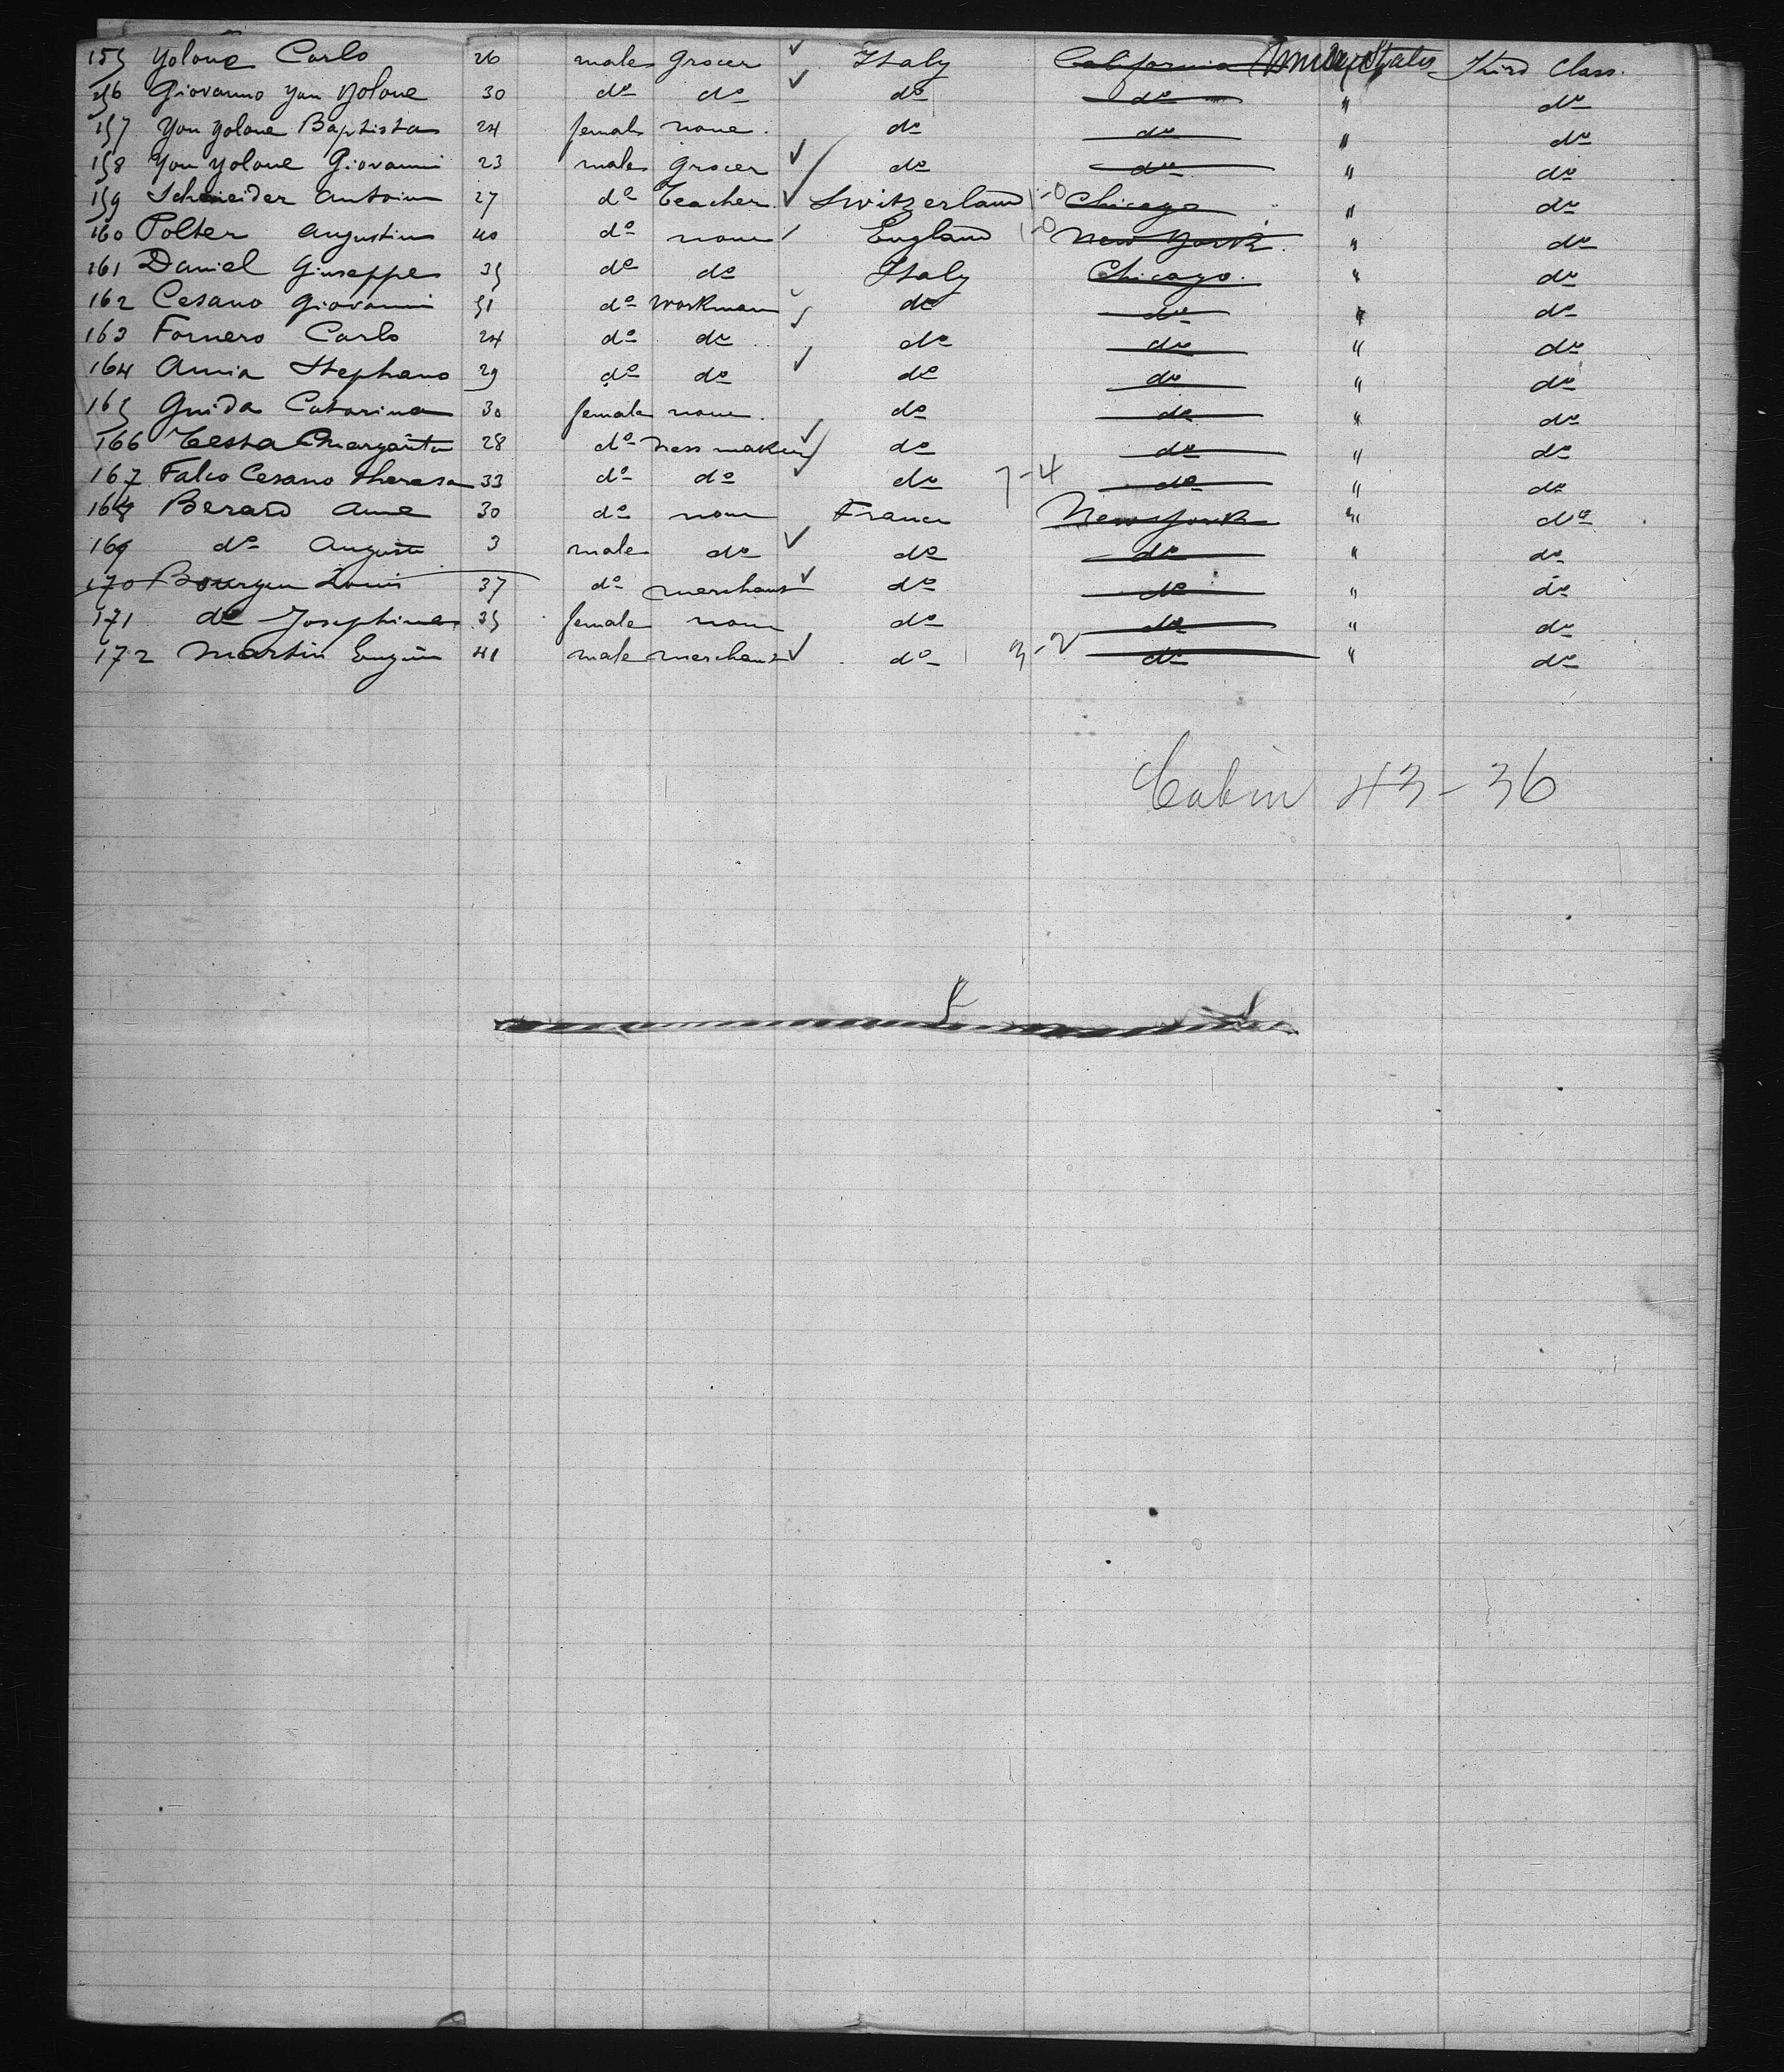 155 Yolove Carlo 26 male grocer ✓ Italy California United States Third Class.
156 Giovanno Yon Yolove 30 do do ✓ do do " do
157 Yon Yolove Baptista 24 female none. do do " do
158 Yon Yolove Giovanni 23 male grocer ✓ do do " do
159 Schneider Antoine 27 do Teacher. ✓ Switzerland 1-0 Chicago " do
160 Polter Augustine 40 do none England 1-0 New York. " do
161 Daniel Giuseppe 35 do do Italy Chicago. " do
162 Cesano Giovanni 51 do workman do do " do
163 Fornero Carlo 24 do do do do " do
164 Stephano 29 do do ✓ do do " do
165 Guida Catarina 30 female none. do do " do
166 Testa Margarita 28 do dress maker ✓ do do " do
167 Falco Cesano Theresa 33 do do ✓ do 7-4 do " do
168 Berard Anne 30 do none France New York " do
169 do Auguste 3 male do ✓ do do " do
170 Louis 37 do merchant ✓ do do " do
171 do Josephine 35 female none do do " do
172 Martin Eugène 41 male merchant ✓ do 3-2 do " do
Cabin 43-36